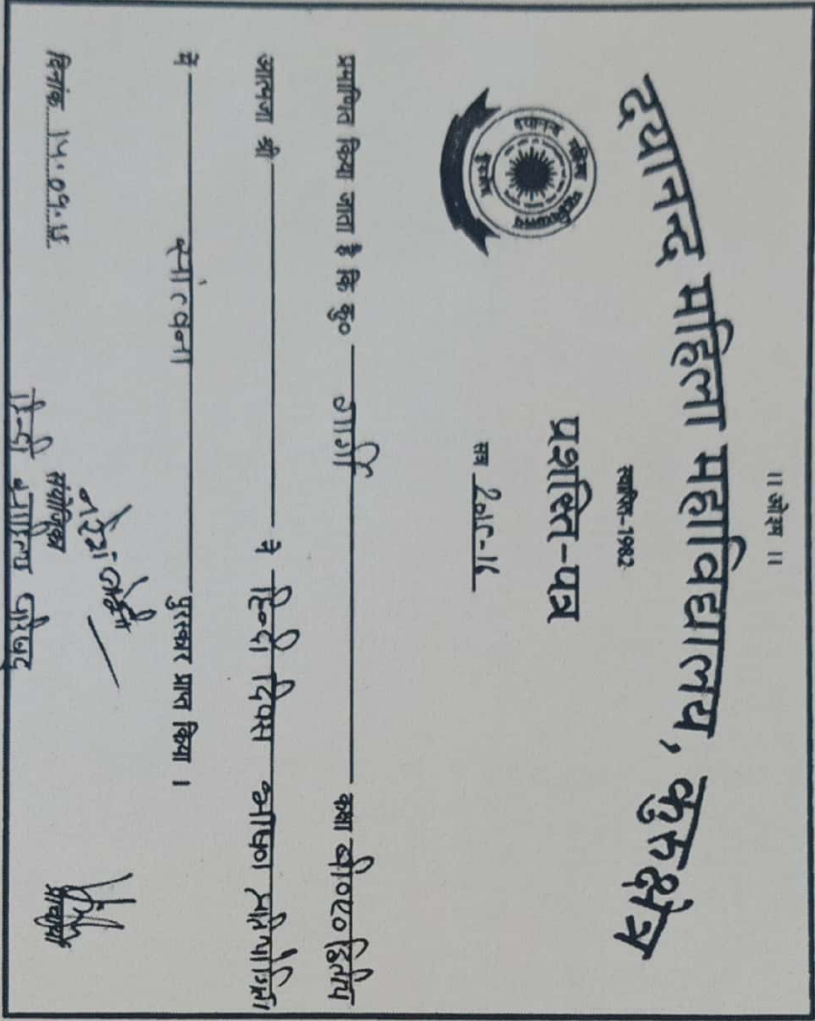 ।। ओ३म ।।
दयानन्द महिला महाविद्यालय, कुरुक्षेत्र
स्थापित-1982
दयानन्द महिला महाविद्यालय
कुरुक्षेत्र
प्रशस्ति-पत्र
सत्र 2015-16
प्रमाणित किया जाता है कि कु० गार्गी कक्षा बी०ए० द्वितीय
आत्मजा श्री में हिन्दी दिवस भाषण प्रतियोगिता
में सांत्वना पुरस्कार प्राप्त किया ।
दिनांक 14.09.15 संयोजिका प्राचार्या
हिन्दी साहित्य परिषद्